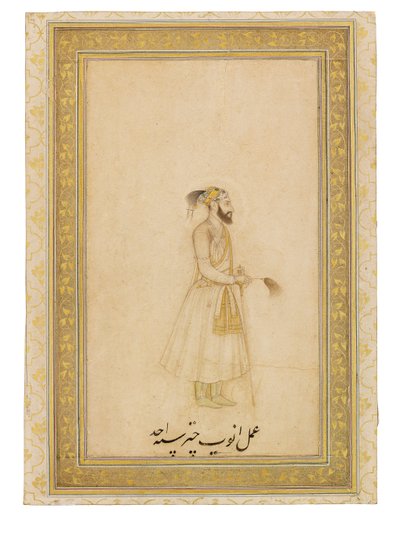 عمل انوپ چتر سنه احد